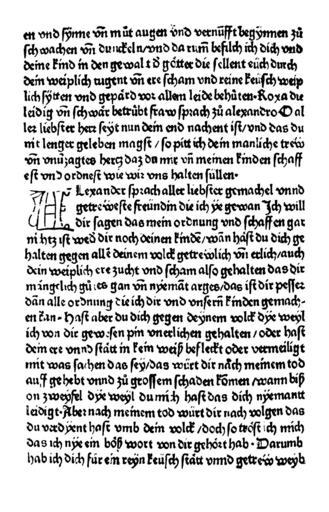 en vnd synne vñ můt augen vnd vernüfft begynnen zů
schwachen vñ dunckeln/vnd da rum̃ befilch ich dich vnd
deine kind in den gewalt d̕ götter die sellent euch durch
dein weiplich tugent vñ ere scham vnd reine keüsch weip
lich sytten vnd gepärd vor allem leide behüten· Roxa die
leidig vñ schwär betrübt fraw sprach zů alexandro O al
ler liebster herr seyt nun dein end nachent ist/vnd das du
nit lenger geleben magst/so pitt ich dein manliche trew
vñ vnuzagtes hertz daz du mir vñ meinen kinden schaff
est vnd ordnest wie wir vns halten süllen·
Alexander sprach aller liebster gemachel vnnd
getreweste freundin die ich ye gewan Ich will
dir sagen das mein ordnung vnd schaffen gar
ni htz ist wed̕ dir noch deinen kinde/wañ hast du dich ge
halten gegen alle deinem volck getrewlich vñ erlich/auch
dein weiplich ere zucht vnd scham also gehalten das dir
mänglich gůtes gan vñ nyemãt arges/das ist dir pesser
dañ alle ordnung die ich dir vnd vnsern kinden gemach-
en kan· Hast aber du dich gegen deynem volck dye weyl
ich von dir gewesen pin vnerlichen gehalten/oder hast
dein ere vnnd stätt in kein weiß befleckt oder vermeiligt
mit was sachen das sey/das würt dir nach meinem tod
auff gehebt vnnd zů grossem schaden kömen/wann biß
on zweyfel dye weyl du mich hast das dich nyemantt
leidigt· Aber nach meinem tod würt dir nach volgen das
du verdyent hast vmb dein volck/doch so tröst ich mich
das ich nye ein böß wort von dir gehört hab· Darumb
hab ich dich für ein reyn keüsch stätt vnnd getrew weyb